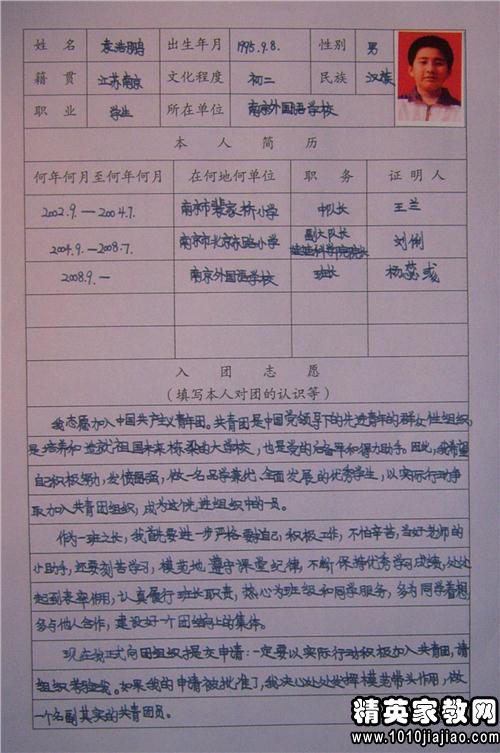 姓 名 袁浩鹏 出生年月 1995.9.8. 性别 男
籍 贯 江苏南京 文化程度 初二 民族 汉族
职 业 学生 所在单位 南京外国语学校
本 人 简 历
何年何月至何年何月 在何地何单位 职 务 证 明 人
2002.9.—2004.7. 南京市裴家桥小学 中队长 王兰
2004.9.—2008.7. 南京市北京东路小学 副大队长 刘俐
2008.9.— 南京外国语学校 班长 杨蕊彧
入 团 志 愿
(填写本人对团的认识等)
我志愿加入中国共产主义青年团。共青团是中国党领导下的先进青年的群众性组织,
是培养和造就祖国未来栋梁的大学校,也是党的后备军和得力助手。因此,我希望
自积极努力,发愤图强,做一名品学兼优、全面发展的优秀学生,以实际行动争
取加入共青团组织,成为这个先进组织中的一员。
作为一班之长,我首先要进一步严格要求自己,积极工作,不怕辛苦,当好老师的
小助手,还要刻苦学习,模范地遵守课堂纪律,不断保持优秀学习成绩,处处
起到表率作用,认真履行班长职责,热心为班级和同学服务,多为同学着想,
多与他人合作,建设好一个团结向上的集体。
现在我正式向团组织提交申请:一定要以实际行动积极加入共青团,请
组织考验我。如果我的申请被批准了,我决心处处发挥模范带头作用,做
一个名副其实的共青团员。
精英家教网
www.1010jiajiao.com